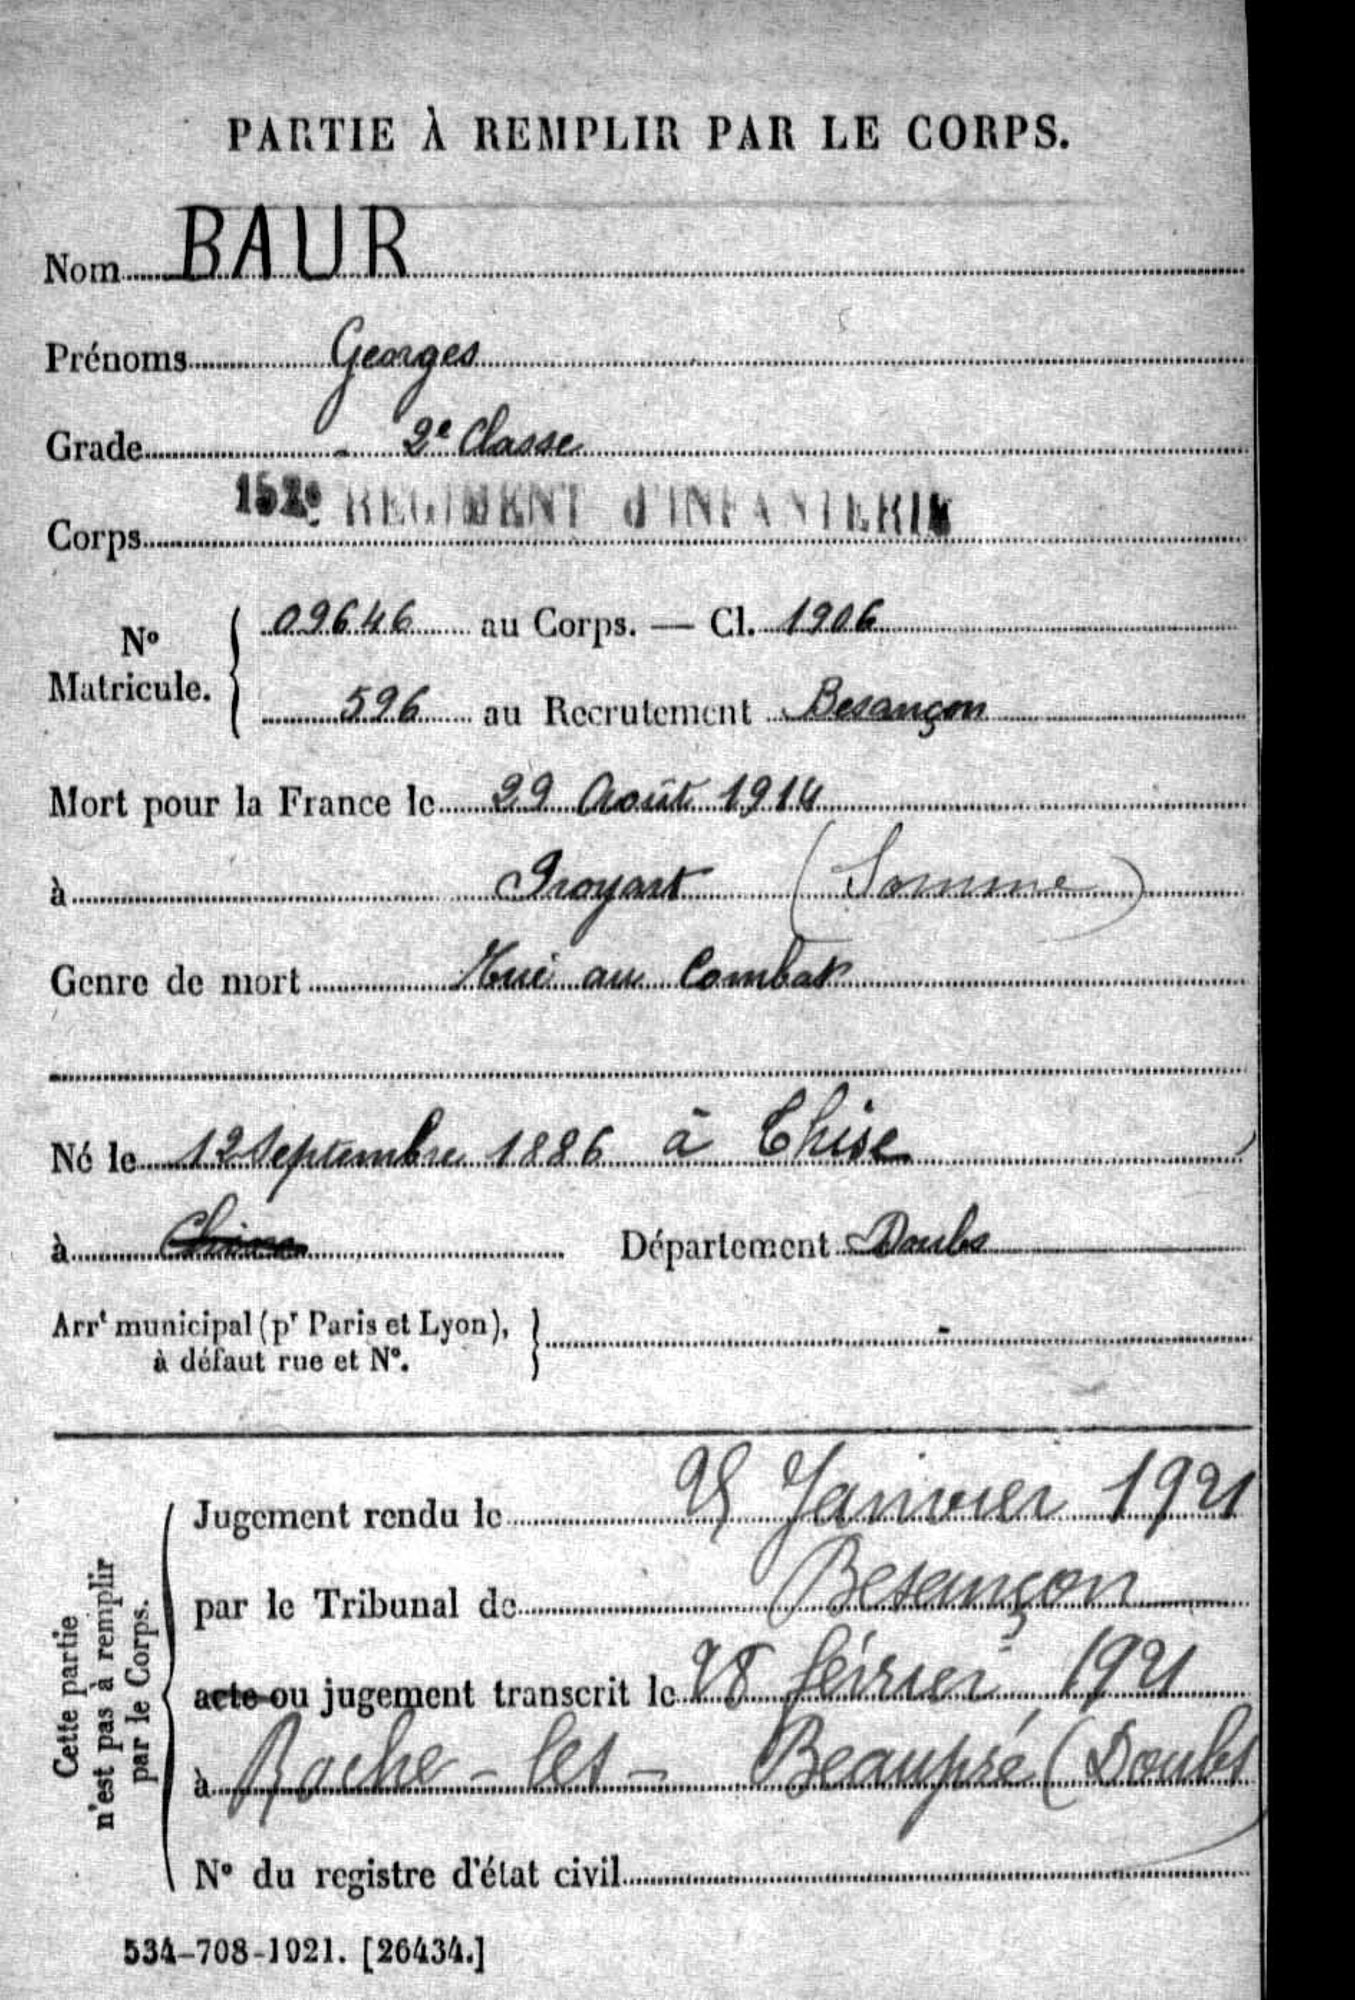 PARTIE À REMPLIR PAR LE CORPS.
Nom BAUR
Prénoms Georges
Grade 2e Classe
Corps 152e RÉGIMENT d'INFANTERIE
No Matricule. { 09646 au Corps. — Cl. 1906
596 au Recrutement Besançon
Mort pour la France le 29 Août 1914
à Proyart (Somme)
Genre de mort Tué au Combat
Né le 12 Septembre 1886 à Thise
à Département Doubs
Arrt municipal (pr Paris et Lyon), à défaut rue et No. } -
Cette partie n'est pas à remplir par le Corps.
Jugement rendu le 25 Janvier 1921
par le Tribunal de Besançon
acte ou jugement transcrit le 28 février 1921
à Roche-les-Beaupré (Doubs
No du registre d'état civil
534-708-1921. [26434.]